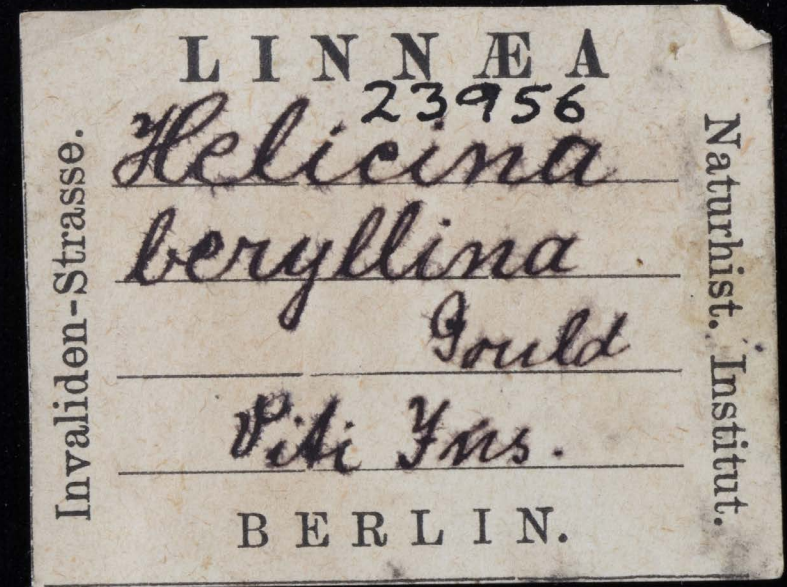 LINNÆA
23956
Helicina
beryllina
Gould
Viti Ins.
BERLIN.
Invaliden-Strasse.
Naturhist. Institut.